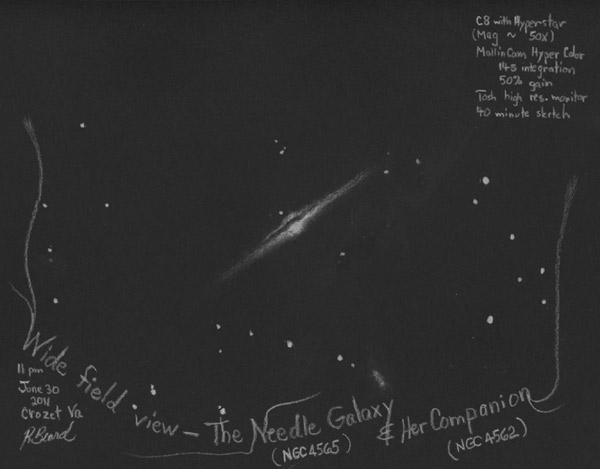 C8 with Hyperstar
(Mag ~ 50x)
MallinCam Hyper Color
14s integration
50% gain
Tosh high res. monitor
40 minute sketch
Wide field view - The Needle Galaxy & Her Companion
(NGC 4565)
(NGC 4562)
11 pm
June 30
2011
Crozet Va
R. Beard